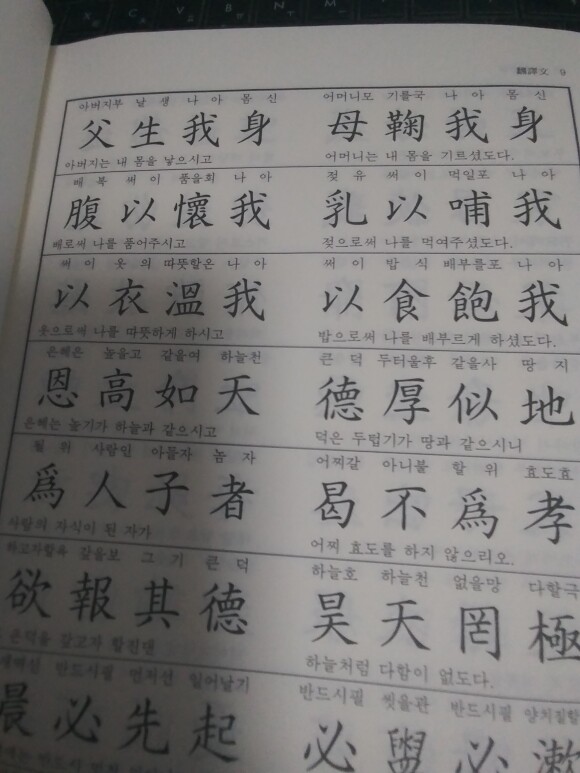 飜譯文 9
아버지부 날 생 나 아 몸 신
父生我身
아버지는 내 몸을 낳으시고
어머니모 기를국 나 아 몸 신
母鞠我身
어머니는 내 몸을 기르셨도다.
배 복 써 이 품을회 나 아
腹以懷我
배로써 나를 품어주시고
젖 유 써 이 먹일포 나 아
乳以哺我
젖으로써 나를 먹여주셨도다.
써 이 옷 의 따뜻할온 나 아
以衣溫我
옷으로써 나를 따뜻하게 하시고
써 이 밥 식 배부를포 나 아
以食飽我
밥으로써 나를 배부르게 하셨도다.
은혜은 높을고 같을여 하늘천
恩高如天
은혜는 높기가 하늘과 같으시고
큰 덕 두터울후 같을사 땅 지
德厚似地
덕은 두텁기가 땅과 같으시니
될 위 사람인 아들자 놈 자
爲人子者
사람의 자식이 된 자가
어찌갈 아니불 할 위 효도효
曷不爲孝
어찌 효도를 하지 않으리오.
하고자할욕 갚을보 그 기 큰 덕
欲報其德
은덕을 갚고자 할진댄
하늘호 하늘천 없을망 다할극
昊天罔極
하늘처럼 다함이 없도다.
새벽신 반드시필 먼저선 일어날기
晨必先起
반드시필 씻을관 반드시필 양치질할
必盥必漱